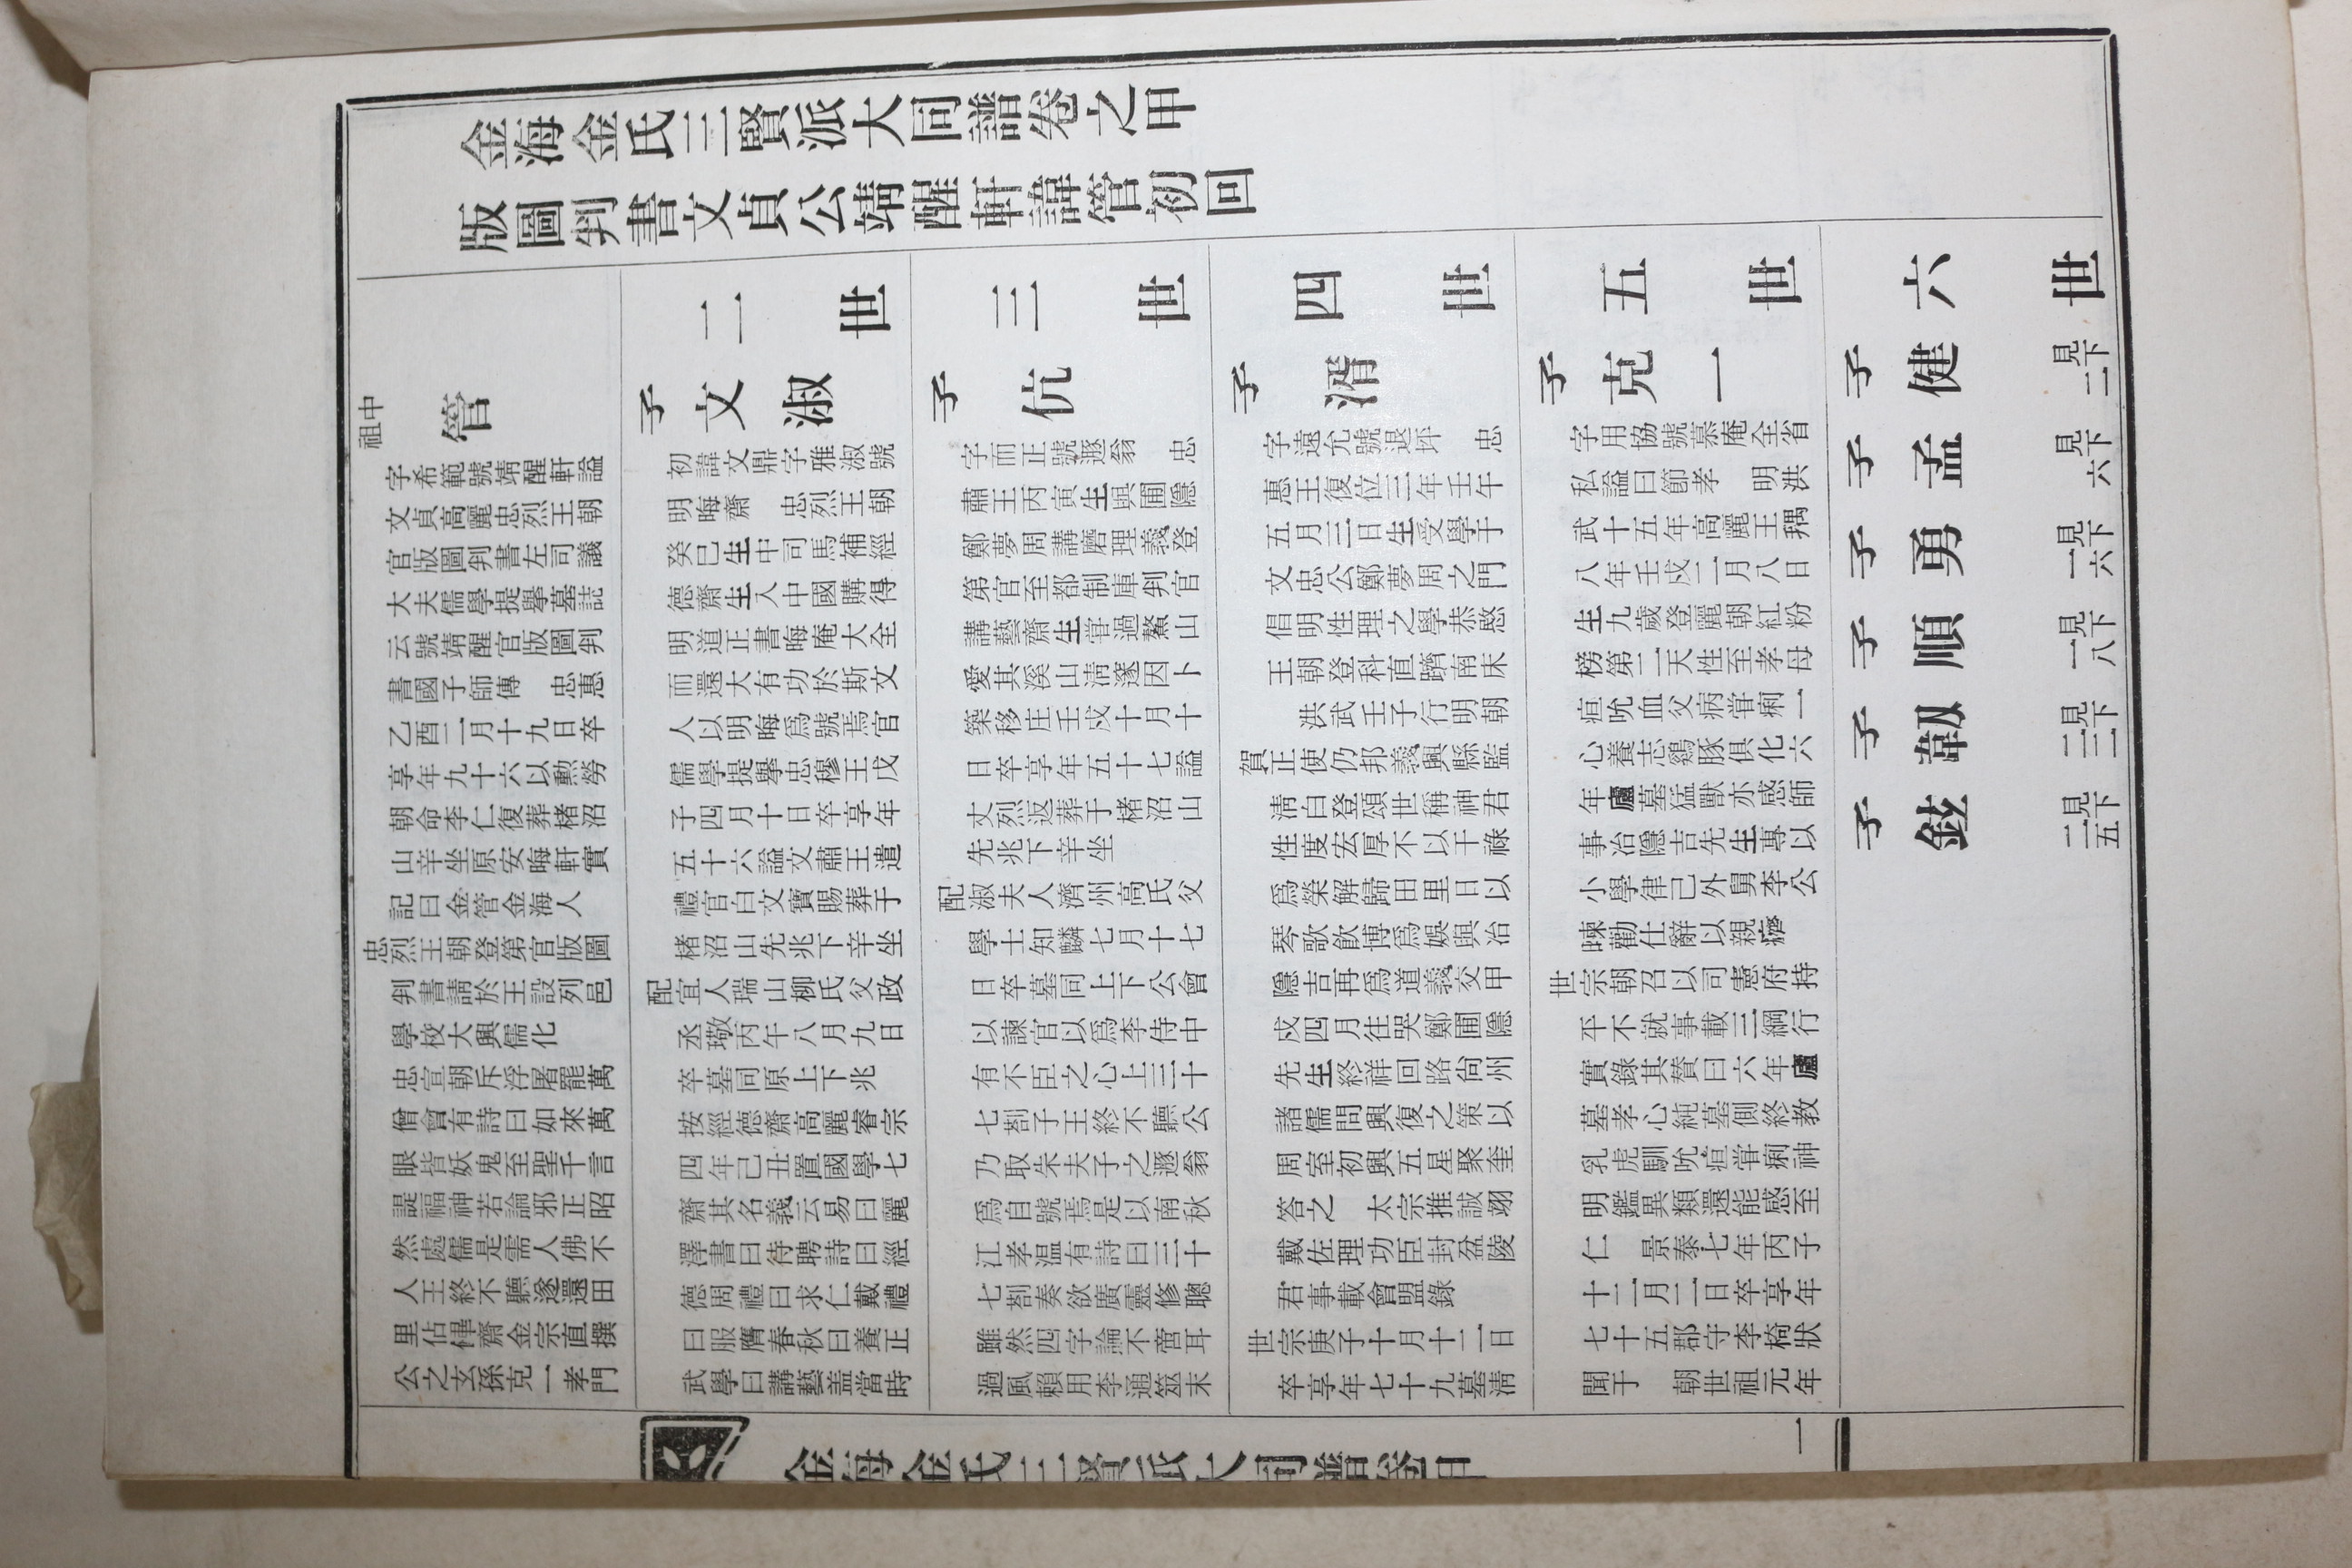 金海金氏三賢派大同譜卷之甲
版圖判書文貞公靖醒軒諱管初回
中祖
管
字希範號靖醒軒諡
文貞高麗忠烈王朝
官版圖判書左司議
大夫儒學提擧墓誌
云號靖醒官版圖判
書國子師傅 忠惠
乙酉二月十九日卒
享年九十六以勲勞
朝命李仁復葬楮沼
山辛坐原安晦軒實
記曰金管金海人
忠烈王朝登第官版圖
判書請於王設列邑
學校大興儒化
忠宣朝斥浮屠罷萬
僧會有詩曰如來萬
眼皆妖鬼至聖千言
諟福神若論邪正昭
然處儒是需人佛不
人王終不聽遂還田
里佔畢齋金宗直撰
公之玄孫克一孝門
二世
子 文淑
初諱文鼎字雅淑號
明晦齋 忠烈王朝
癸巳生中司馬補經
德齋生入中國購得
明道正書晦庵大全
而還大有功於斯文
人以明晦爲號焉官
儒學提擧忠穆王戊
子四月十日卒享年
五十六諡文肅王遣
禮官白文寶賜葬于
楮沼山先兆下辛坐
配宜人瑞山柳氏父政
丞璥丙午八月九日
卒墓同原上下兆
按經德齋高麗睿宗
四年己丑置國學七
齋其名義云易曰麗
澤書曰待聘詩曰經
德周禮曰求仁戴禮
曰服膺春秋曰養正
武學曰講藝盖當時
三世
子 伉
字而正號遯翁 忠
肅王丙寅生與圃隱
鄭夢周講磨理義登
第官至都制庫判官
講藝齋生嘗過鰲山
愛其溪山淸邃因卜
築移庄壬戌十月十
日卒享年五十七諡
文烈返葬于楮沼山
先兆下辛坐
配淑夫人濟州高氏父
學士知麟七月十七
日卒墓同上下公會
以諫官以爲李侍中
有不臣之心上三十
七劄子王終不聽公
乃取朱夫子之遯翁
爲自號焉是以南秋
江孝溫有詩曰三十
七劄奏欲廣靈修聰
雖然四字論不啻耳
過風賴用李通筮末
四世
子 湑
字遠允號退坪 忠
惠王復位三年壬午
五月三日生受學于
文忠公鄭夢周之門
倡明性理之學恭愍
王朝登科直躋南床
洪武壬子行明朝
賀正使仍邦義興縣監
淸白登頌世稱神君
性度宏厚不以干祿
爲榮解歸田里日以
琴歌飮博爲娛與冶
隱吉再爲道義交甲
戍四月往哭鄭圃隱
先生終祥回路尙州
諸儒問興復之策以
周室初興五星聚奎
答之 太宗推誠翊
戴佐理功臣封盆陵
君事載會盟錄
世宗庚子十月十二日
卒享年七十九墓淸
五世
子 克一
字用協號慕庵全省
私諡曰節孝 明洪
武十五年高麗王禑
八年壬戍二月八日
生九歲登麗朝紅粉
榜第二天性至孝母
疽吮血父病嘗痢一
心養志鷄豚俱化六
年廬墓猛獸亦感師
事冶隱吉先生專以
小學律己外舅李公
暕勸仕辭以親癠
世宗朝召以司憲府持
平不就事載三綱行
實錄其贊曰六年廬
墓孝心純墓側終教
乳虎馴吮疽嘗痢神
明鑑異類還能感至
仁 景泰七年丙子
十二月二日卒享年
七十五郡守李椅狀
聞于 朝世祖元年
六世
子 健 見下二
子 孟 見下六
子 勇 見下一六
子 順 見下一八
子 韌 見下二三
子 鉉 見下二五
金海金氏三賢派大同譜卷甲
一